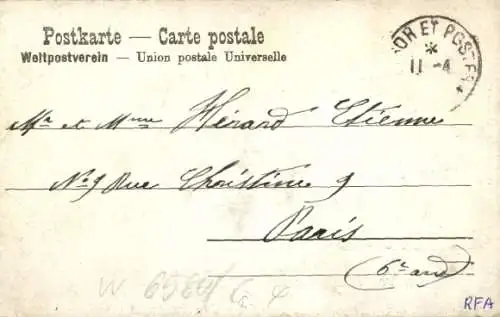 Postkarte — Carte postale
Weltpostverein — Union postale Universelle
OR ET POSTE
*
11-4
Mr et Mme Hérard Etienne
No 9 Rue Christine 9
Paris
(6e arr)
W 658
RFA